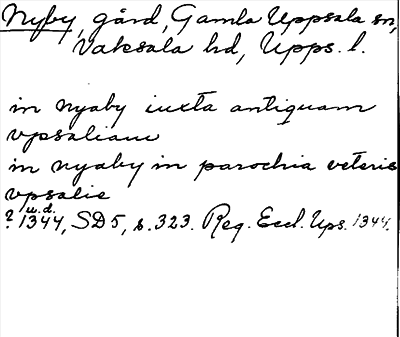 Nyby, gård, Gamla Uppsala sn,
Vaksala hd, Upps. l.
in nyaby iuxta antiquam
vpsaliam
in nyaby in parochia veteris
vpsalie
u.d.
? 1344, SD 5, s. 323. Reg. Eccl. Ups. 1344.